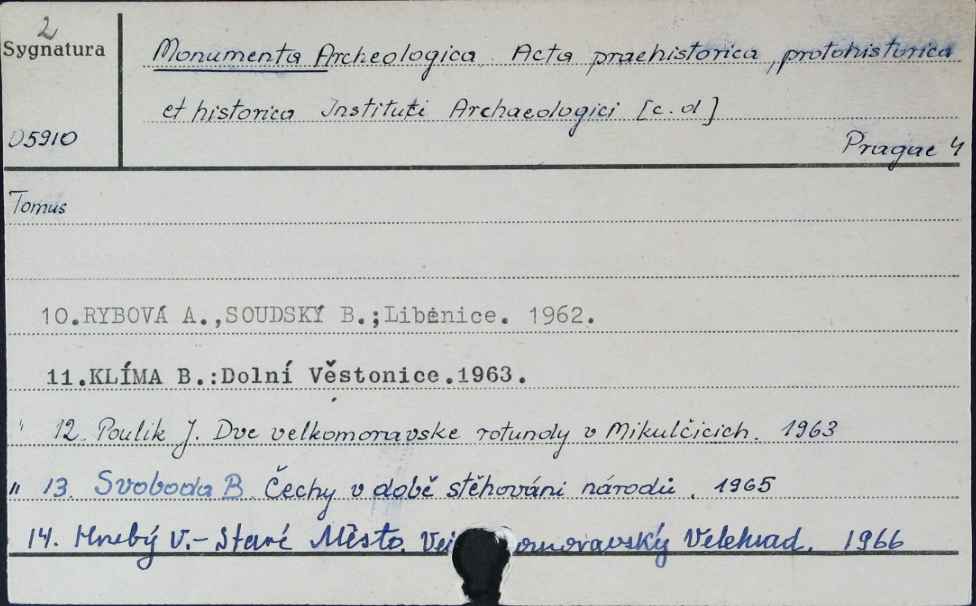 2
Sygnatura
Monumenta Archeologica. Acta praehistorica, protohistorica
et historica Instituti Archaeologici [c.d]
D5910
Pragae 4
Tomus
10.RYBOVÁ A.,SOUDSKÝ B.;Liběnice. 1962.
11.KLÍMA B.:Dolní Věstonice.1963.
" 12. Poulik J. Dve velkomoravske rotundy v Mikulčicich. 1963
" 13. Svoboda B. Čechy v době stěhováni národů. 1965
14. Hrubý V.- Staré Město. Velehrad. 1966